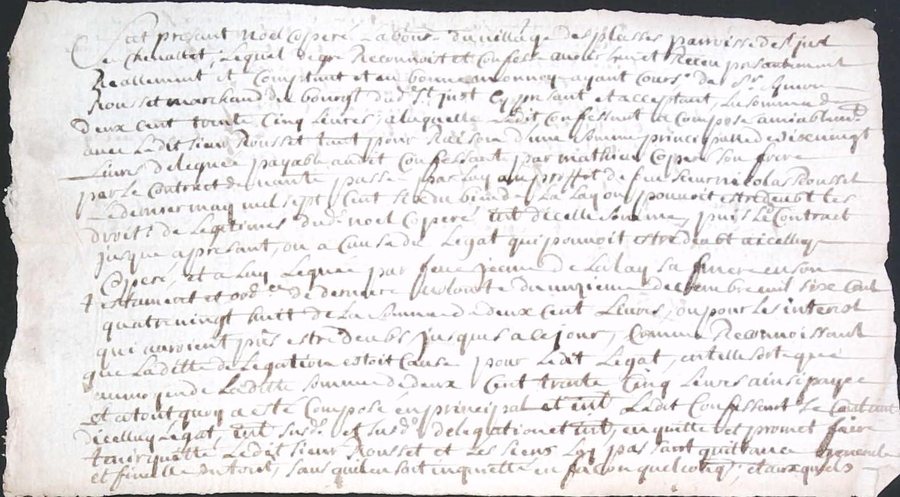 fut présent noël Copere Laboureur du village des plasses parroisse de st just
en Chevallet, Lequel degre Reconnoist et Confesse avoir heu et Receu presantement
Reallement et Comptant et en bonne monnoye ayant Cours de Sr
Rousset marchand du bourgt dud st just Cy present et acceptant, La somme de
deux cent trante Cinq Livres, a laquelle Ledit Confessant a Composé amiablemt
avec Ledit sieur Rousset tant pour Raison d'une somme principalle de
Livres deleguée payable audit Confessant par mathieu Copere son frere
par Le Contract de vante passé par feu sieur nicolas Rousset
Le dernier may mil sept Cent pouvoit estre deubt Les
droits de Legitimes dud noel Copere, intt dicelle somme, puis Le Contract
jusque apresant, ou a Cause du Legat qui pouvoit estre deubt a icelluy
Copere, et a Luy Legué par feue de Lalay sa mere en son
testament et ordce de derniere volonté du unzieme mil six Cent
quatre vingt huit de La somme de deux cent Livres, ou pour Les interest
qui auroient peus estre deubs jusqus a ce jour, Comme Reconnoissant
que Laditte delegation estoit Cause pour Ledit Legat, en telle sorte que
au moyen de Laditte somme de deux Cent trante Cinq Livres ainsi payée
et a tout quoy a esté Composé en principal et intt Ledit Confessant se Contant
dicelluy Legat, intt susds et susde delegation et intt, en quitte et promet faire
tenir quitte Ledit sieur Rousset et Les siens Luy passant quittance generalle
et finelle sans quil en soit inquietté en façon quelconq,